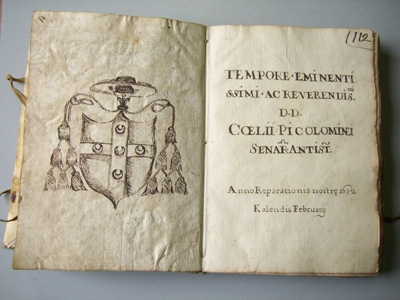 112
TEMPORE·EMINENTI
SSIMI·AC REVERENDIS.
D.D.
CŒLII PICOLOMINI
SENAR. ANTIST.
Anno Reparationis nostrę 1672
Kalendis Februarij